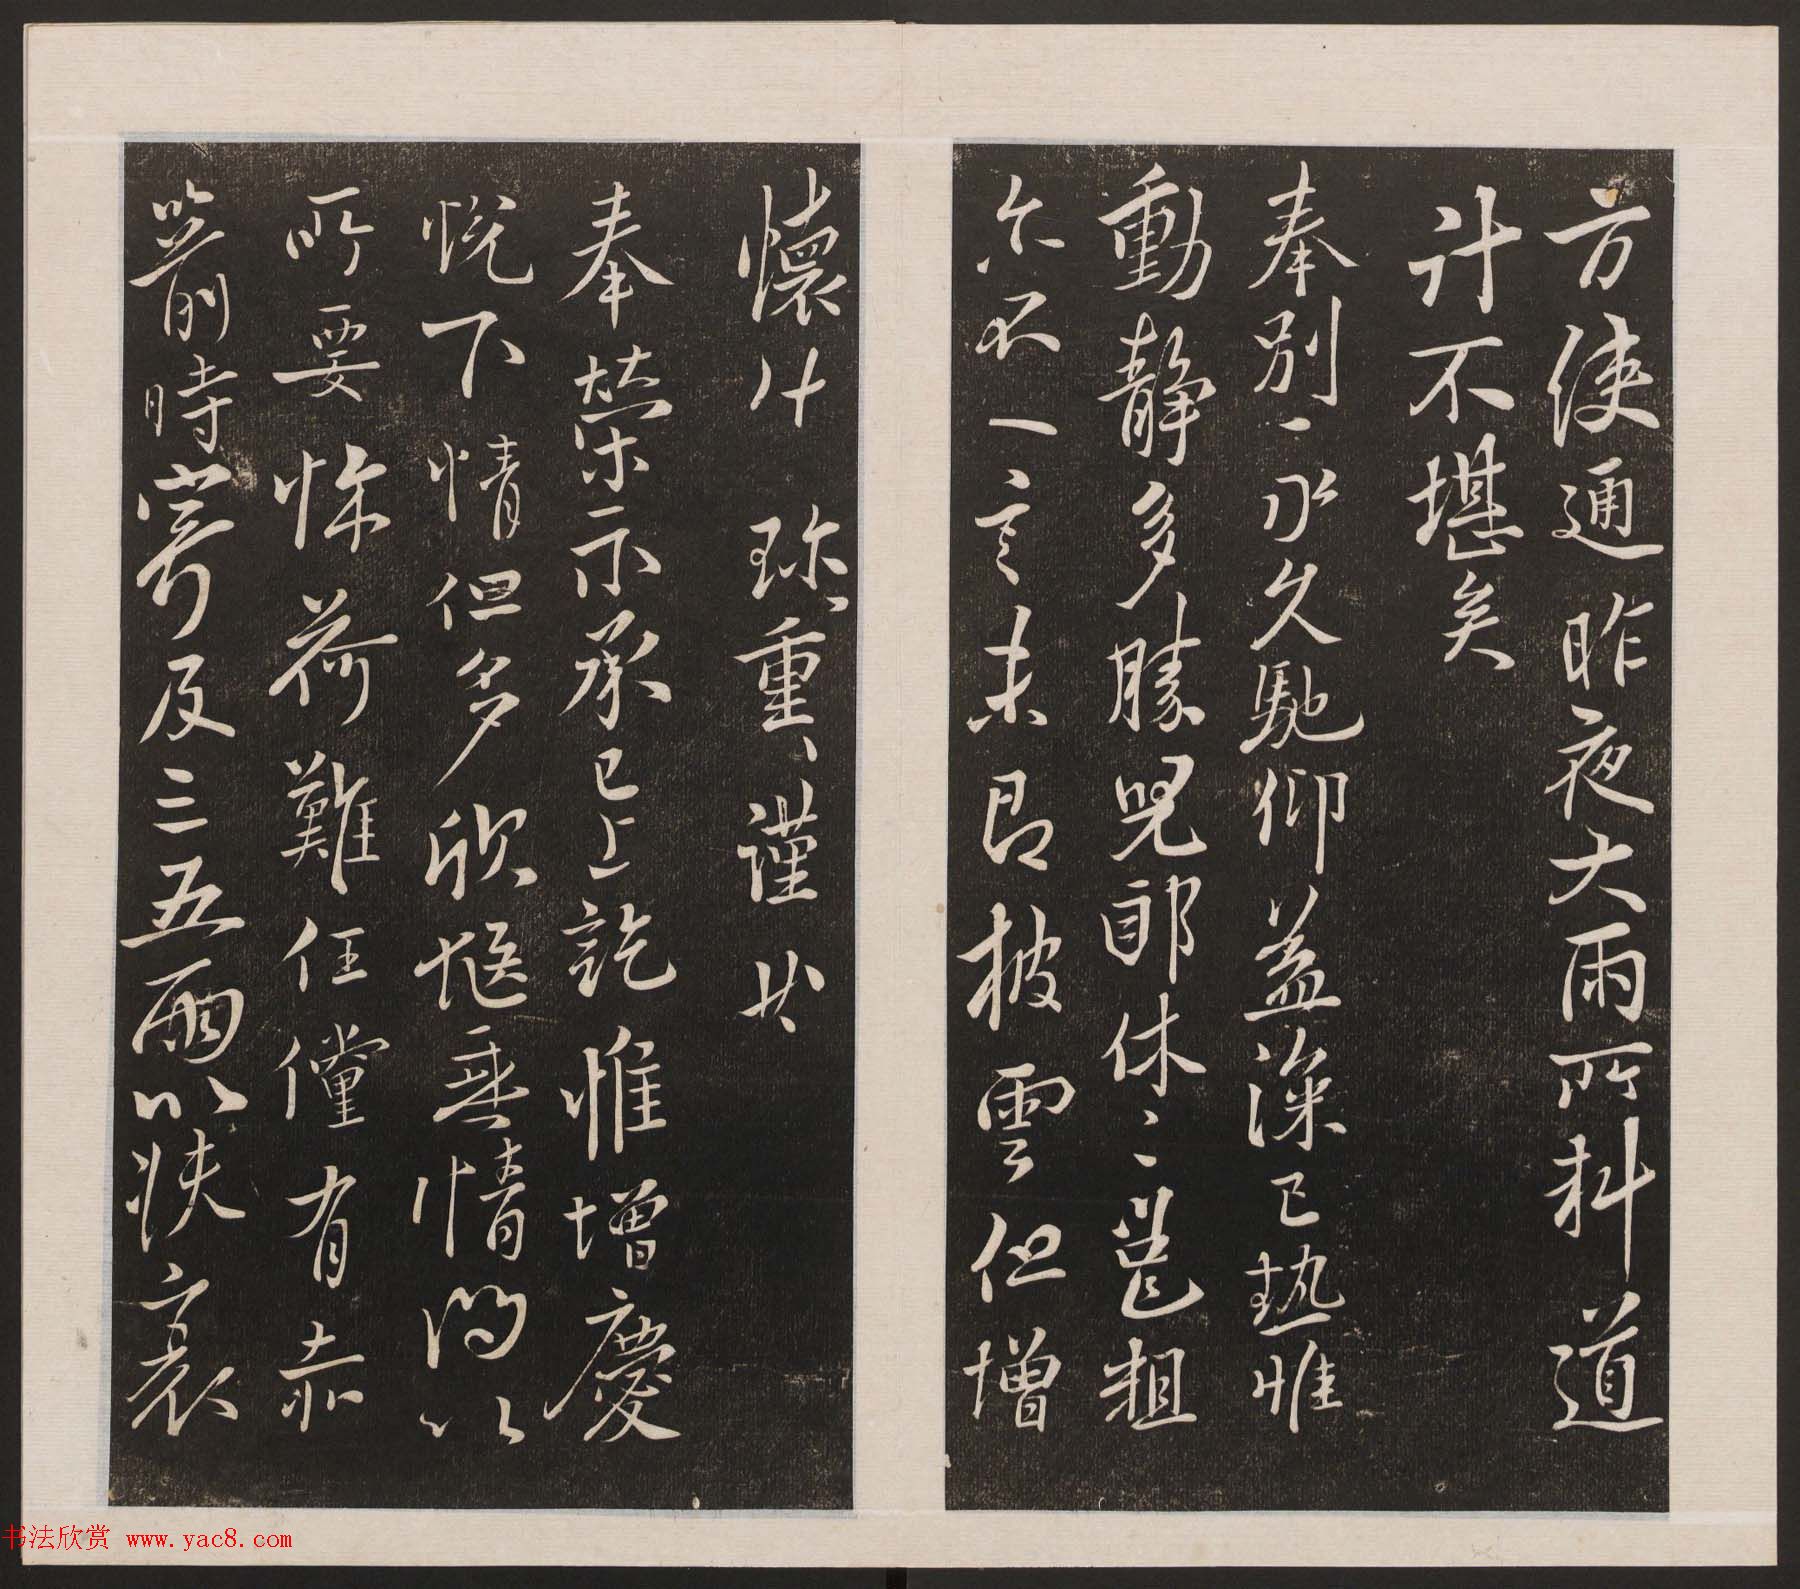 方使通昨夜大雨所料道
計不堪矣
奉别永久馳仰盖深已熱惟
動靜多勝兒郎休〻邕粗
尒不一言未即披雲但增
懷什珍〻重〻謹
奉榮示承已上訖惟增慶
悦下情但多欣愜垂情問以
所要悚荷難任儻有赤
箭時寄及三五兩以扶衰
书法欣赏 www.yac8.com